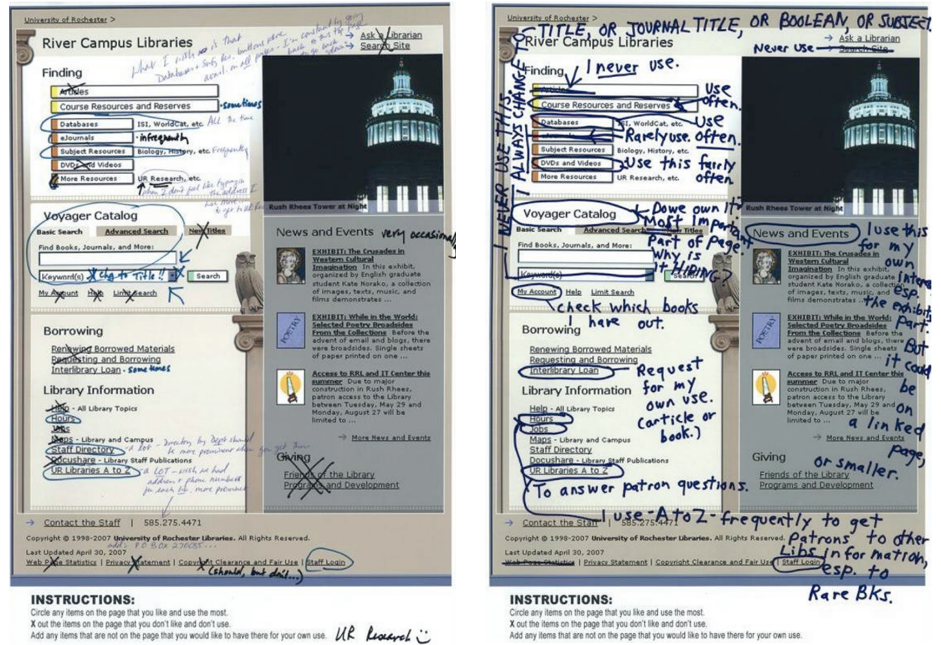 University of Rochester >
River Campus Libraries
What I wish is that
→ Ask a Librarian
→ Search Site
Finding
Articles
Course Resources and Reserves - sometimes
Databases ISI, WorldCat, etc. All the time
eJournals - infrequently
Subject Resources Biology, History, etc. Frequently
DVDs and Videos
More Resources UR Research, etc.
when I don't feel like typing in
the address I
Rush Rhees Tower at Night
Voyager Catalog
Basic Search Advanced Search New Titles very occasionally
Find Books, Journals, and More:
Keyword(s) Chg to Title!! Search
My Account Help Limit Search
News and Events
EXHIBIT: The Crusades in
Western Cultural
Imagination In this exhibit,
organized by English graduate
student Kate Norako, a collection
of images, texts, music, and
films demonstrates ...
POETRY
EXHIBIT: While in the World:
Selected Poetry Broadsides
From the Collections Before the
advent of email and blogs, there
were broadsides. Single sheets
of paper printed on one ...
Access to RRL and IT Center this
summer Due to major
construction in Rush Rhees,
patron access to the Library
between Tuesday, May 29 and
Monday, August 27 will be
limited to ...
→ More News and Events
Borrowing
Renewing Borrowed Materials
Requesting and Borrowing
Interlibrary Loan - sometimes
Library Information
Help - All Library Topics
Hours
Jobs
Maps - Library and Campus
Staff Directory - a lot - Directory by Dept should
be more prominent when you get there
Docushare - Library Staff Publications
UR Libraries A to Z - a LOT - wish we had
address & phone numbers
for each lib. more prominent
Giving
Friends of the Library
Programs and Development
→ Contact the Staff | 585.275.4471
Copyright © 1998-2007 University of Rochester Libraries. All Rights Reserved.
add: P O BOX
Last Updated April 30, 2007
Web Page Statistics | Privacy Statement | Copyright Clearance and Fair Use | Staff Login
(should, but don't...)
INSTRUCTIONS:
Circle any items on the page that you like and use the most.
X out the items on the page that you don't like and don't use.
Add any items that are not on the page that you would like to have there for your own use. UR Research
University of Rochester >
TITLE, OR JOURNAL TITLE, OR BOOLEAN, OR SUBJECT.
River Campus Libraries
→ Ask a Librarian
Never use Search Site
I NEVER USE THIS
I ALWAYS CHANGE
Finding I never use.
Articles
Course Resources and Reserves Use often.
Databases ISI, WorldCat, etc. use often.
Rarely use.
Subject Resources Biology, History, etc.
DVDs and Videos Use this fairly often
More Resources UR Research, etc.
Rush Rhees Tower at Night
Voyager Catalog
Do we own it?
Most Important
Part of Page.
Why is
it HIDING?
Basic Search Advanced Search New Titles
Find Books, Journals, and More:
Keyword(s) Search
My Account Help Limit Search
check which books
I have out.
News and Events
I use this
for my
own
interest
esp.
the exhibits
part.
But
it could
be
on
a linked
page,
or smaller.
EXHIBIT: The Crusades in
Western Cultural
Imagination In this exhibit,
organized by English graduate
student Kate Norako, a collection
of images, texts, music, and
films demonstrates ...
POETRY
EXHIBIT: While in the World:
Selected Poetry Broadsides
From the Collections Before the
advent of email and blogs, there
were broadsides. Single sheets
of paper printed on one ...
Access to RRL and IT Center this
summer Due to major
construction in Rush Rhees,
patron access to the Library
between Tuesday, May 29 and
Monday, August 27 will be
limited to ...
→ More News and Events
Borrowing
Renewing Borrowed Materials
Requesting and Borrowing
Interlibrary Loan
Request
for my
own use.
(article or
book.)
Library Information
Help - All Library Topics
Hours
Jobs
Maps - Library and Campus
Staff Directory
Docushare - Library Staff Publications
UR Libraries A to Z
To answer patron questions.
Giving
Friends of the Library
Programs and Development
→ Contact the Staff | 585.275.4471
I use -A to Z- frequently to get
Patrons to other
Libs Information,
esp. to
Rare Bks.
Copyright © 1998-2007 University of Rochester Libraries. All Rights Reserved.
Last Updated April 30, 2007
Web Page Statistics | Privacy Statement | Copyright Clearance and Fair Use | Staff Login
INSTRUCTIONS:
Circle any items on the page that you like and use the most.
X out the items on the page that you don't like and don't use.
Add any items that are not on the page that you would like to have there for your own use.